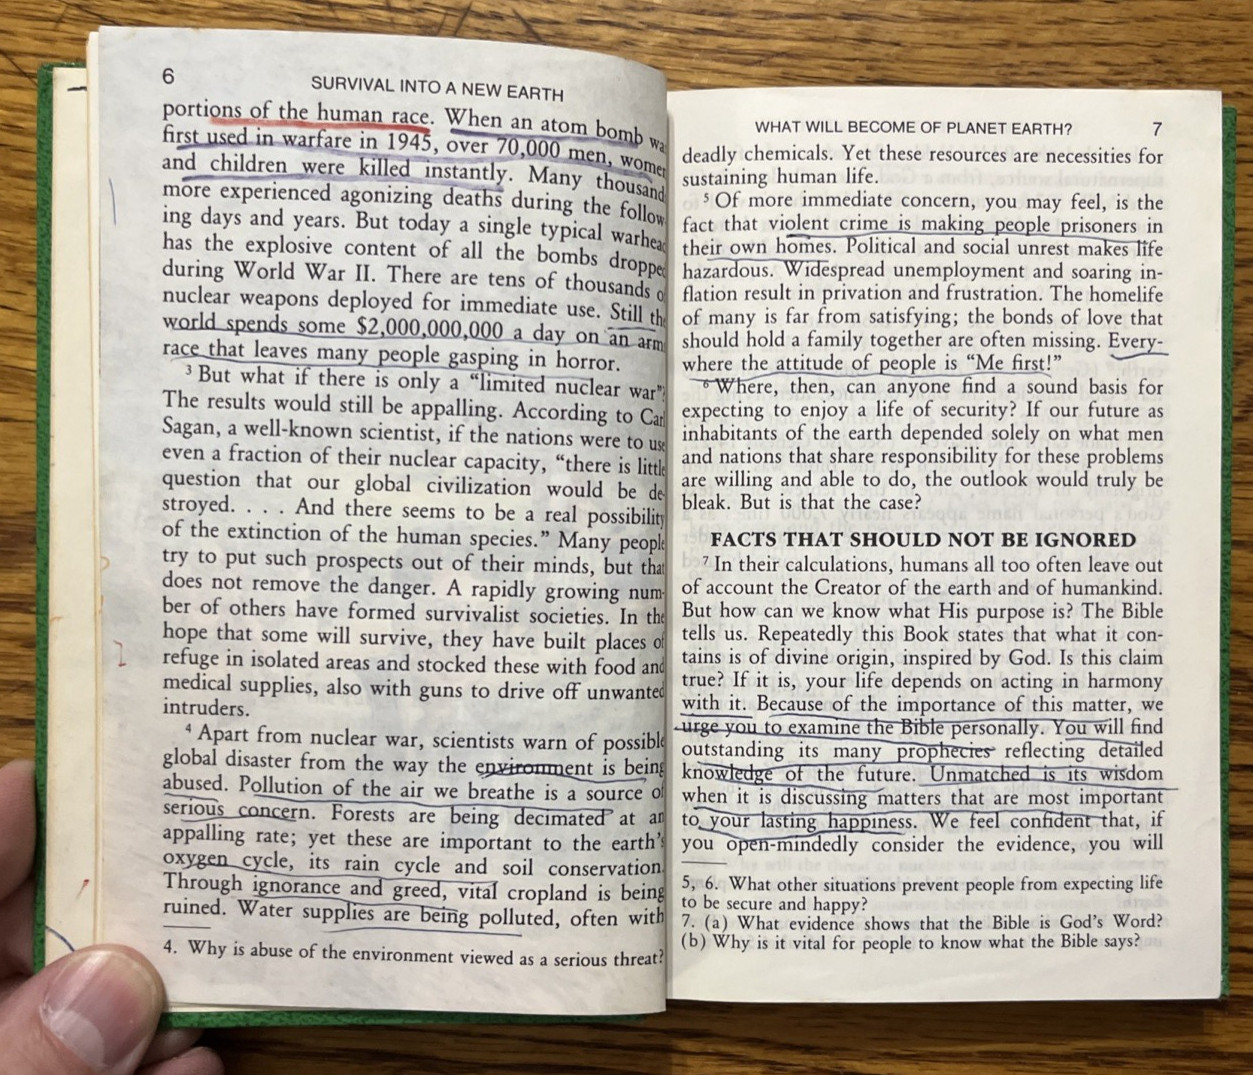 6
SURVIVAL INTO A NEW EARTH
portions of the human race. When an atom bomb wa
first used in warfare in 1945, over 70,000 men, women
and children were killed instantly. Many thousand
more experienced agonizing deaths during the follow
ing days and years. But today a single typical warhead
has the explosive content of all the bombs dropped
during World War II. There are tens of thousands o
nuclear weapons deployed for immediate use. Still the
world spends some $2,000,000,000 a day on an arm
race that leaves many people gasping in horror.
3 But what if there is only a “limited nuclear war”?
The results would still be appalling. According to Carl
Sagan, a well-known scientist, if the nations were to use
even a fraction of their nuclear capacity, “there is little
question that our global civilization would be de-
stroyed. . . . And there seems to be a real possibility
of the extinction of the human species.” Many people
try to put such prospects out of their minds, but that
does not remove the danger. A rapidly growing num-
ber of others have formed survivalist societies. In the
hope that some will survive, they have built places of
refuge in isolated areas and stocked these with food and
medical supplies, also with guns to drive off unwanted
intruders.
4 Apart from nuclear war, scientists warn of possible
global disaster from the way the environment is being
abused. Pollution of the air we breathe is a source of
serious concern. Forests are being decimated at an
appalling rate; yet these are important to the earth’s
oxygen cycle, its rain cycle and soil conservation.
Through ignorance and greed, vital cropland is being
ruined. Water supplies are being polluted, often with
4. Why is abuse of the environment viewed as a serious threat?
WHAT WILL BECOME OF PLANET EARTH? 7
deadly chemicals. Yet these resources are necessities for
sustaining human life.
5 Of more immediate concern, you may feel, is the
fact that violent crime is making people prisoners in
their own homes. Political and social unrest makes life
hazardous. Widespread unemployment and soaring in-
flation result in privation and frustration. The homelife
of many is far from satisfying; the bonds of love that
should hold a family together are often missing. Every-
where the attitude of people is “Me first!”
6 Where, then, can anyone find a sound basis for
expecting to enjoy a life of security? If our future as
inhabitants of the earth depended solely on what men
and nations that share responsibility for these problems
are willing and able to do, the outlook would truly be
bleak. But is that the case?
FACTS THAT SHOULD NOT BE IGNORED
7 In their calculations, humans all too often leave out
of account the Creator of the earth and of humankind.
But how can we know what His purpose is? The Bible
tells us. Repeatedly this Book states that what it con-
tains is of divine origin, inspired by God. Is this claim
true? If it is, your life depends on acting in harmony
with it. Because of the importance of this matter, we
urge you to examine the Bible personally. You will find
outstanding its many prophecies reflecting detailed
knowledge of the future. Unmatched is its wisdom
when it is discussing matters that are most important
to your lasting happiness. We feel confident that, if
you open-mindedly consider the evidence, you will
5, 6. What other situations prevent people from expecting life
to be secure and happy?
7. (a) What evidence shows that the Bible is God’s Word?
(b) Why is it vital for people to know what the Bible says?